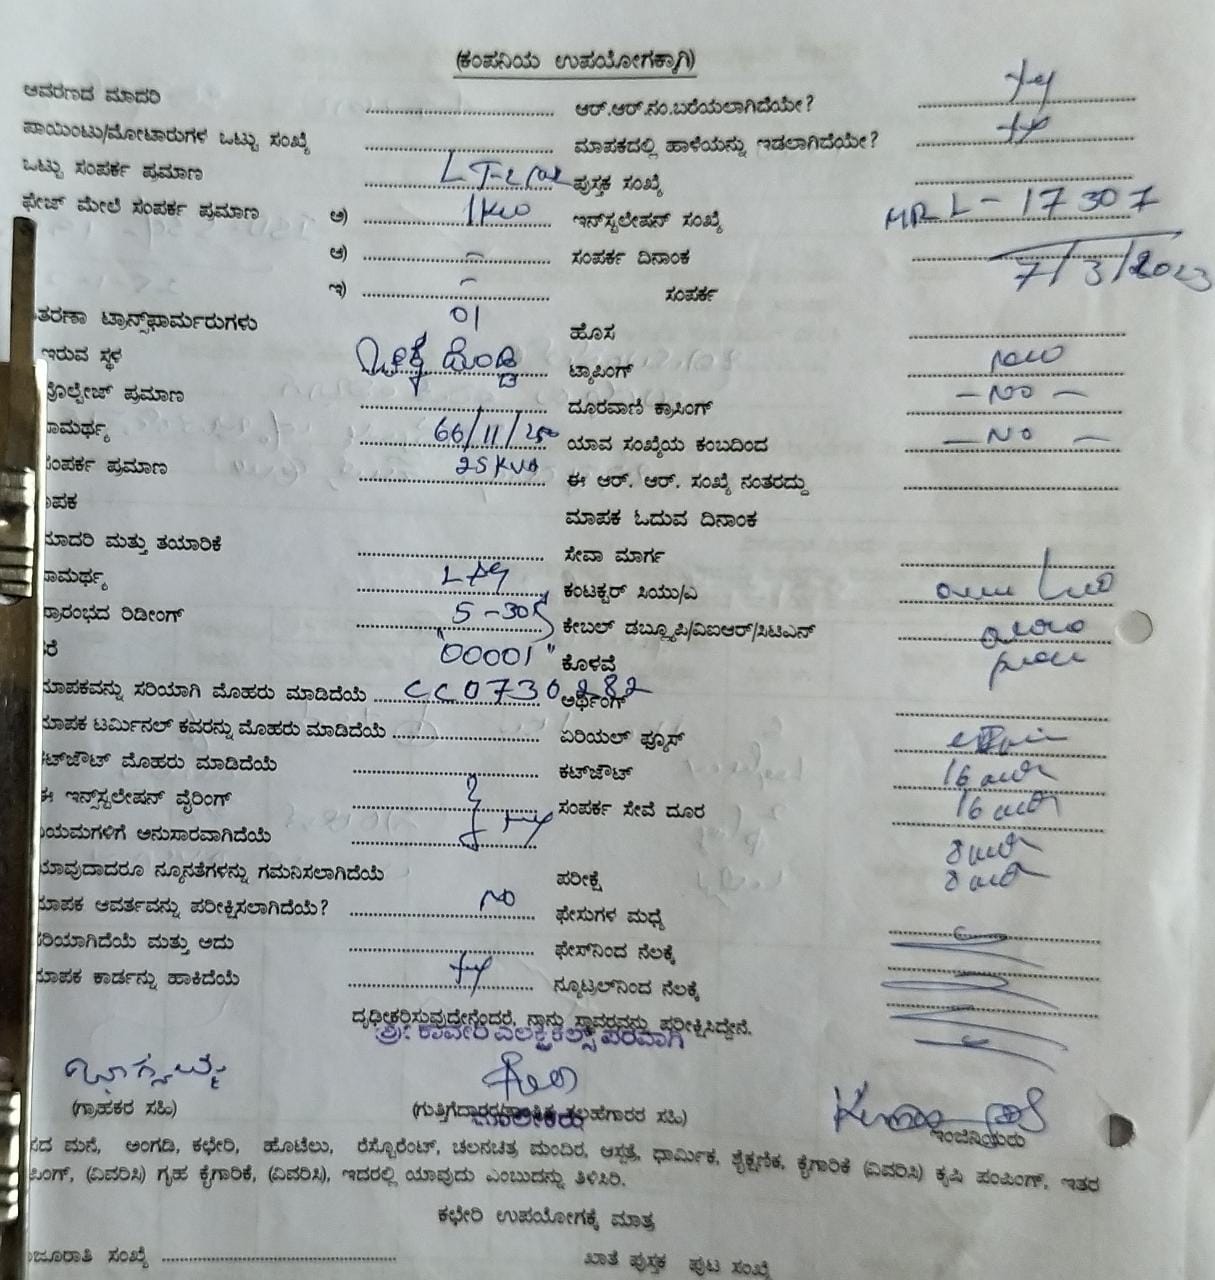 (ಕಂಪನಿಯ ಉಪಯೋಗಕ್ಕಾಗಿ)
ಆವರಣದ ಮಾದರಿ ಆರ್.ಆರ್.ನಂ.ಬರೆಯಲಾಗಿದೆಯೇ?
ಪಾಯಿಂಟು/ಮೋಟಾರುಗಳ ಒಟ್ಟು ಸಂಖ್ಯೆ ಮಾಪಕದಲ್ಲಿ ಹಾಳೆಯನ್ನು ಇಡಲಾಗಿದೆಯೇ?
ಒಟ್ಟು ಸಂಪರ್ಕ ಪ್ರಮಾಣ ಪುಸ್ತಕ ಸಂಖ್ಯೆ
ಫೇಜ್ ಮೇಲೆ ಸಂಪರ್ಕ ಪ್ರಮಾಣ ಅ) 1KW ಇನ್‌ಸ್ಟಲೇಷನ್ ಸಂಖ್ಯೆ MRL-17307
ಆ) – ಸಂಪರ್ಕ ದಿನಾಂಕ 7/3/2023
ಇ) – ಸಂಪರ್ಕ
ತರಣಾ ಟ್ರಾನ್ಸ್‌ಫಾರ್ಮರುಗಳು 01 ಹೊಸ
ಇರುವ ಸ್ಥಳ ಟ್ಯಾಪಿಂಗ್ new
ವೋಲ್ಟೇಜ್ ಪ್ರಮಾಣ ದೂರವಾಣಿ ಕ್ರಾಸಿಂಗ್ – NO –
ಾಮರ್ಥ್ಯ 66/11/250 ಯಾವ ಸಂಖ್ಯೆಯ ಕಂಬದಿಂದ – NO –
ಸಂಪರ್ಕ ಪ್ರಮಾಣ 25KVA ಈ ಆರ್. ಆರ್. ಸಂಖ್ಯೆ ನಂತರದ್ದು
ಾಪಕ ಮಾಪಕ ಓದುವ ದಿನಾಂಕ
ಮಾದರಿ ಮತ್ತು ತಯಾರಿಕೆ ಸೇವಾ ಮಾರ್ಗ
ಾಮರ್ಥ್ಯ ಕಂಟಕ್ಟರ್ ಸಿಯು/ಎ
ಪ್ರಾರಂಭದ ರಿಡೀಂಗ್ 5-30 ಕೇಬಲ್ ಡಬ್ಲ್ಯೂಪಿ/ವಿಐಆರ್/ಸಿಟಿಎಸ್
ರೆ "00001" ಕೊಳವೆ
ಮಾಪಕವನ್ನು ಸರಿಯಾಗಿ ಮೊಹರು ಮಾಡಿದೆಯೆ CC0730282 ಅರ್ಥಿಂಗ್
ಮಾಪಕ ಟರ್ಮಿನಲ್ ಕವರನ್ನು ಮೊಹರು ಮಾಡಿದೆಯೆ ಏರಿಯಲ್ ಫ್ಯೂಸ್
ಕಟ್‌ಔಟ್ ಮೊಹರು ಮಾಡಿದೆಯೆ ಕಟ್‌ಔಟ್ 16
ಈ ಇನ್ಸ್‌ಸ್ಟಲೇಷನ್ ವೈರಿಂಗ್ ಸಂಪರ್ಕ ಸೇವೆ ದೂರ 16
ಿಯಮಗಳಿಗೆ ಅನುಸಾರವಾಗಿದೆಯೆ 8
ಯಾವುದಾದರೂ ನ್ಯೂನತೆಗಳನ್ನು ಗಮನಿಸಲಾಗಿದೆಯೆ ಪರೀಕ್ಷೆ 8
ಮಾಪಕ ಆವರ್ತವನ್ನು ಪರೀಕ್ಷಿಸಲಾಗಿದೆಯೆ? NO ಫೇಸುಗಳ ಮಧ್ಯೆ
ಸರಿಯಾಗಿದೆಯೆ ಮತ್ತು ಅದು ಫೇಸ್‌ನಿಂದ ನೆಲಕ್ಕೆ
ಮಾಪಕ ಕಾರ್ಡನ್ನು ಹಾಕಿದೆಯೆ ನ್ಯೂಟ್ರಲ್‌ನಿಂದ ನೆಲಕ್ಕೆ
ದೃಢೀಕರಿಸುವುದೇನೆಂದರೆ, ನಾನು ಸ್ಥಾವರವನ್ನು ಪರೀಕ್ಷಿಸಿದ್ದೇನೆ.
ಶ್ರೀ ಕಾವೇರಿ ಎಲೆಕ್ಟ್ರಿಕಲ್ಸ್ ಪರವಾಗಿ
(ಗ್ರಾಹಕರ ಸಹಿ) ಮಾಲೀಕರು ಸಹಿ) ಇಂಜಿನಿಯರು
ಸದ ಮನೆ, ಅಂಗಡಿ, ಕಛೇರಿ, ಹೊಟೆಲು, ರೆಸ್ಟೊರೆಂಟ್, ಚಲನಚಿತ್ರ ಮಂದಿರ, ಆಸ್ಪತ್ರೆ, ಧಾರ್ಮಿಕ, ಶೈಕ್ಷಣಿಕ, ಕೈಗಾರಿಕೆ (ವಿವರಿಸಿ) ಕೃಷಿ ಪಂಪಿಂಗ್, ಇತರ
ಪಿಂಗ್, (ವಿವರಿಸಿ) ಗೃಹ ಕೈಗಾರಿಕೆ, (ವಿವರಿಸಿ), ಇದರಲ್ಲಿ ಯಾವುದು ಎಂಬುದನ್ನು ತಿಳಿಸಿರಿ.
ಕಛೇರಿ ಉಪಯೋಗಕ್ಕೆ ಮಾತ್ರ
ಂಜೂರಾತಿ ಸಂಖ್ಯೆ ಖಾತೆ ಪುಸ್ತಕ ಪುಟ ಸಂಖ್ಯೆ